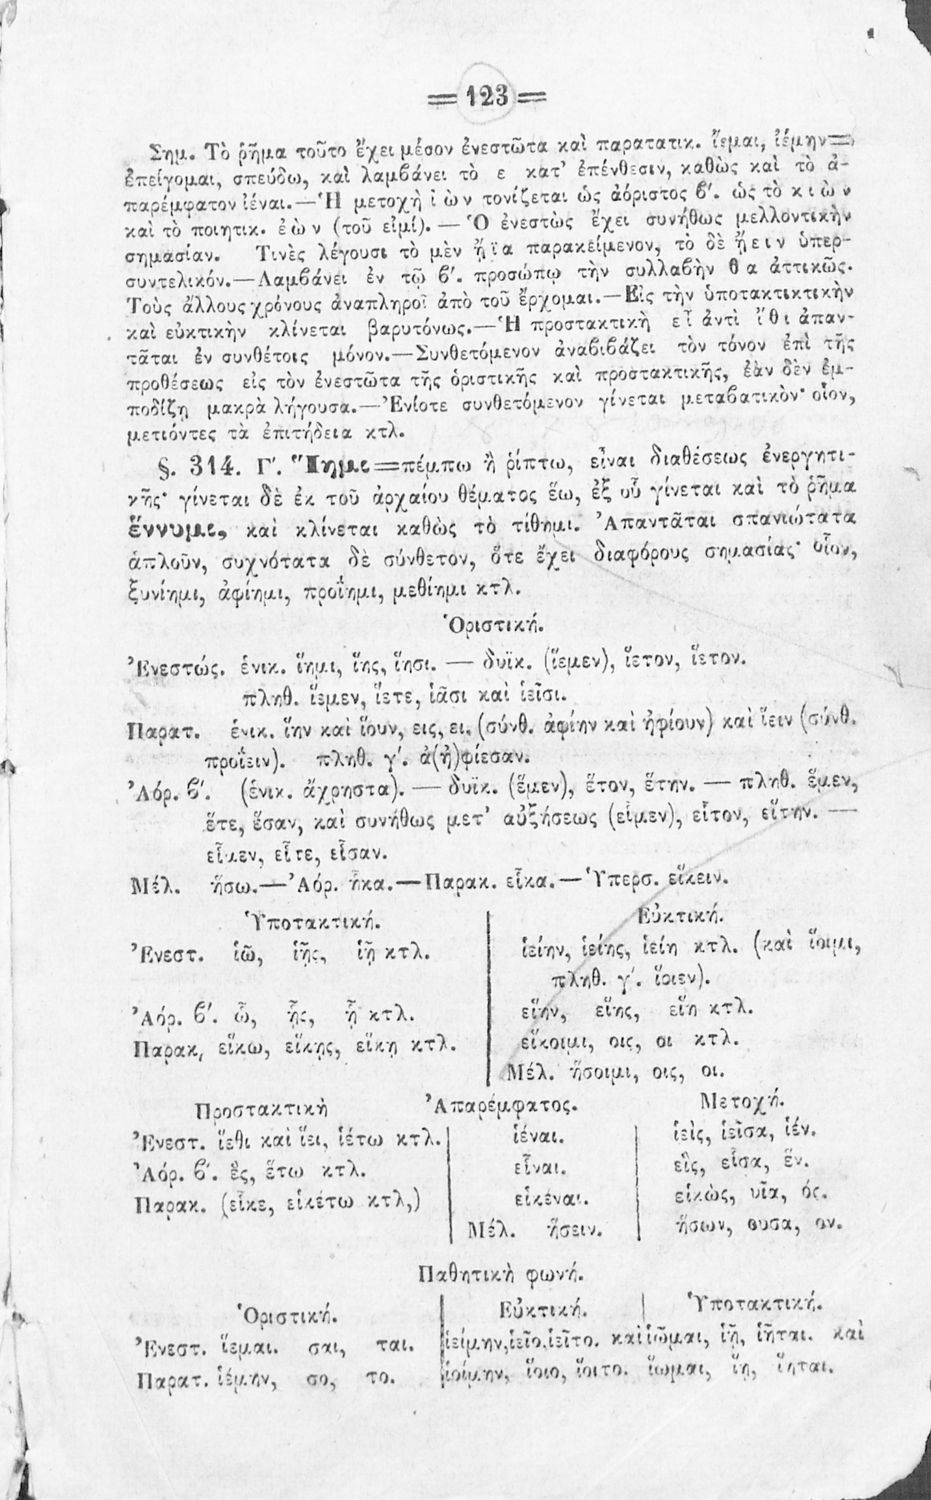 = 123 =
Σημ. Τὸ ῥῆμα τοῦτο ἔχει μέσον ἐνεστῶτα καὶ παρατατικ. ἵεμαι, ἱέμην=
ἐπείγομαι, σπεύδω, καὶ λαμβάνει τὸ ε κατ' ἐπένθεσιν, καθὼς καὶ τὸ ἀ-
παρέμφατον ἰέναι.—Ἡ μετοχὴ ἰ ὼν τονίζεται ὡς ἀόριστος β΄. ὡς τὸ κ ι ὼ ν
καὶ τὸ ποιητικ. ἐ ὼ ν (τοῦ εἰμί). — Ὁ ἐνεστὼς ἔχει συνήθως μελλοντικὴν
σημασίαν. Τινὲς λέγουσι τὸ μὲν ἤ ϊ α παρακείμενον, τὸ δὲ ᾔ ε ι ν ὑπερ-
συντελικόν.—Λαμβάνει ἐν τῷ β΄. προσώπῳ τὴν συλλαβὴν θ α ἀττικῶς.
Τοὺς ἄλλους χρόνους ἀναπληροῖ ἀπὸ τοῦ ἔρχομαι.—Εἰς τὴν ὑποτακτικτικὴν
καὶ εὐκτικὴν κλίνεται βαρυτόνως.—Ἡ προστακτικὴ ε ἶ ἀντὶ ἴ θ ι ἀπαν-
τᾶται ἐν συνθέτοις μόνον.—Συνθετόμενον ἀναβιβάζει τὸν τόνον ἐπὶ τῆς
προθέσεως εἰς τὸν ἐνεστῶτα τῆς ὁριστικῆς καὶ προστακτικῆς, ἐὰν δὲν ἐμ-
ποδίζῃ μακρὰ λήγουσα.—Ἐνίοτε συνθετόμενον γίνεται μεταβατικὸν· οἷον,
μετιόντες τὰ ἐπιτήδεια κτλ.
§. 314. Γ΄. Ἵημι=πέμπω ἢ ῥίπτω, εἶναι διαθέσεως ἐνεργητι-
κῆς· γίνεται δὲ ἐκ τοῦ ἀρχαίου θέματος ἕω, ἐξ οὗ γίνεται καὶ τὸ ῥῆμα
ἕννυμι, καὶ κλίνεται καθὼς τὸ τίθημι. Ἀπαντᾶται σπανιώτατα
ἁπλοῦν, συχνότατα δὲ σύνθετον, ὅτε ἔχει διαφόρους σημασίας· οἷον,
ξυνίημι, ἀφίημι, προΐημι, μεθίημι κτλ.
Ὁριστική.
Ἐνεστώς. ἑνικ. ἵημι, ἵης, ἵησι. — δυϊκ. (ἵεμεν), ἵετον, ἵετον.
πληθ. ἵεμεν, ἵετε, ἱᾶσι καὶ ἱεῖσι.
Παρατ. ἑνικ. ἵην καὶ ἵουν, εις, ει, (σύνθ. ἀφίην καὶ ἠφίουν) καὶ ἵειν (σύνθ.
προΐειν). πληθ. γ΄. ἀ(ἠ)φίεσαν.
Ἀόρ. β΄. (ἑνικ. ἄχρηστα). — δυϊκ. (ἕμεν), ἕτον, ἕτην. — πληθ. ἕμεν,
ἕτε, ἕσαν, καὶ συνήθως μετ' αὐξήσεως (εἷμεν), εἷτον, εἵτην. —
εἷμεν, εἷτε, εἷσαν.
Μέλ. ἥσω.—Ἀόρ. ἧκα.—Παρακ. εἷκα.—Ὑπερσ. εἵκειν.
Ὑποτακτική. Εὐκτική.
Ἐνεστ. ἱῶ, ἱῇς, ἱῇ κτλ. ἱείην, ἱείης, ἱείη κτλ. (καὶ ἵοιμι,
πληθ. γ΄. ἵοιεν).
Ἀόρ. β΄. ὧ, ᾗς, ᾗ κτλ. εἵην, εἵης, εἵη κτλ.
Παρακ, εἵκω, εἵκῃς, εἵκῃ κτλ. εἵκοιμι, οις, οι κτλ.
Μέλ. ἥσοιμι, οις, οι.
Προστακτικὴ Ἀπαρέμφατος. Μετοχή.
Ἐνεστ. ἵεθι καὶ ἵει, ἱέτω κτλ. ἱέναι. ἱεὶς, ἱεῖσα, ἱέν.
Ἀόρ. β΄. ἓς, ἕτω κτλ. εἷναι. εἳς, εἷσα, ἕν.
Παρακ. (εἷκε, εἱκέτω κτλ,) εἱκέναι. εἱκὼς, υῖα, ός.
Μέλ. ἥσειν. ἥσων, ουσα, ον.
Παθητικὴ φωνή.
Ὁριστική. Εὐκτική. Ὑποτακτική.
Ἐνεστ. ἵεμαι. σαι, ται. ἱείμην, ἱεῖο, ἱεῖτο. καὶ ἱῶμαι, ἱῇ, ἱῆται. καὶ
Παρατ. ἱέμην, σο, το. ἱοίμην, ἵοιο, ἵοιτο. ἵωμαι, ἵῃ, ἵηται.